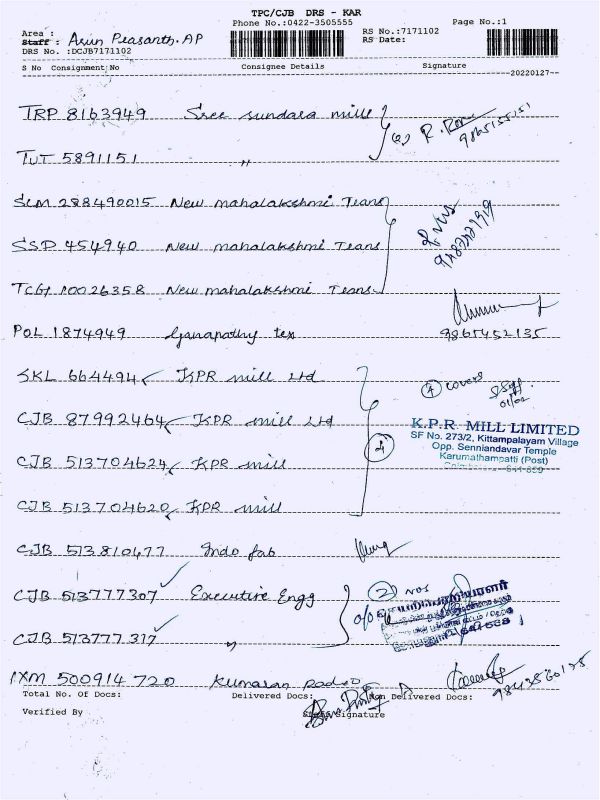 TPC/CJB DRS - KAR
Phone No.:0422-3505555 Page No.:1
Area : RS No.:7171102
Staff : Arun Prasanth.AP RS Date:
DRS No. :DCJB7171102
S No Consignment No Consignee Details Signature
20220127
TRP 8163949 Sree Sundara mill R.
TUT 5891151 〃
SLM 288490015 New mahalakshmi Trans
SSD 454940 New mahalakshmi Trans
TCG 10026358 New mahalakshmi Trans
POL 1874949 Ganapathy tex 9865452135
SKL 664494 KPR mill Ltd 4 covers
CJB 87992464 KPR mill Ltd
K.P.R. MILL LIMITED
SF No. 273/2, Kittampalayam Village
Opp. Senniandavar Temple
Karumathampatti (Post)
CJB 513704624 KPR mill 4
CJB 513704620 KPR mill
CJB 513810477 Indo fab
CJB 513777307 Executive Engg 2 Nos
CJB 513777317 〃
IXM 500914720 Kumaran
Total No. Of Docs: Delivered Docs: Non Delivered Docs:
Verified By Staff Signature